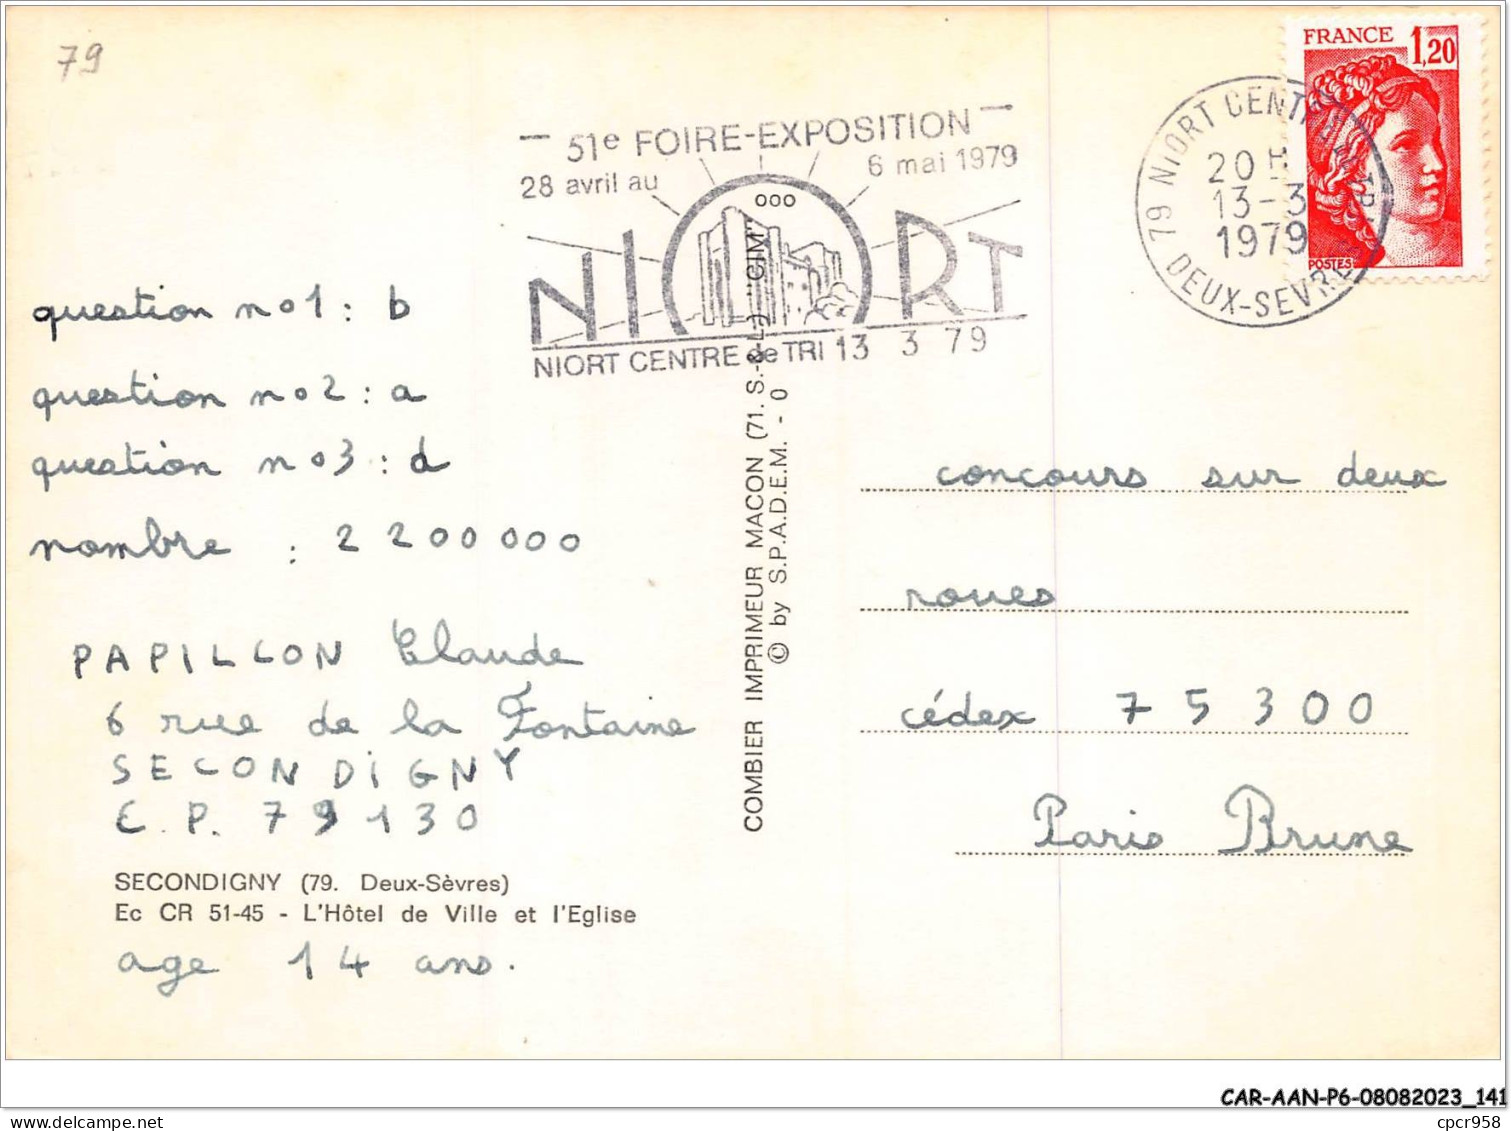 79
FRANCE 1,20
POSTES
51e FOIRE-EXPOSITION
28 avril au 6 mai 1979
NIORT
NIORT CENTRE de TRI 13 3 79
79 NIORT CENTRE DE TRI
20 H
13-3
1979
DEUX-SEVRES
question no1 : b
question no2 : a
question no3 : d
nombre : 2 200 000
PAPILLON Claude
6 rue de la Fontaine
SECONDIGNY
C.P. 79130
SECONDIGNY (79. Deux-Sèvres)
Ec CR 51-45 - L'Hôtel de Ville et l'Eglise
age 14 ans.
COMBIER IMPRIMEUR MACON (71. S.-&-L.) "CIM"
© by S.P.A.D.E.M. - 0
concours sur deux
roues
cédex 75300
Paris Brune
CAR-AAN-P6-08082023_141
cpcr958